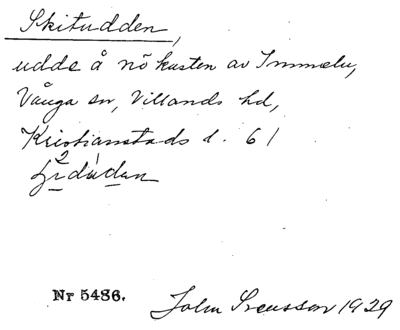 Skitudden,
udde å nö kusten av Immeln,
Vånga sn, Villands hd,
Kristianstads l. 61
Nr 5486.
John Svensson 1929